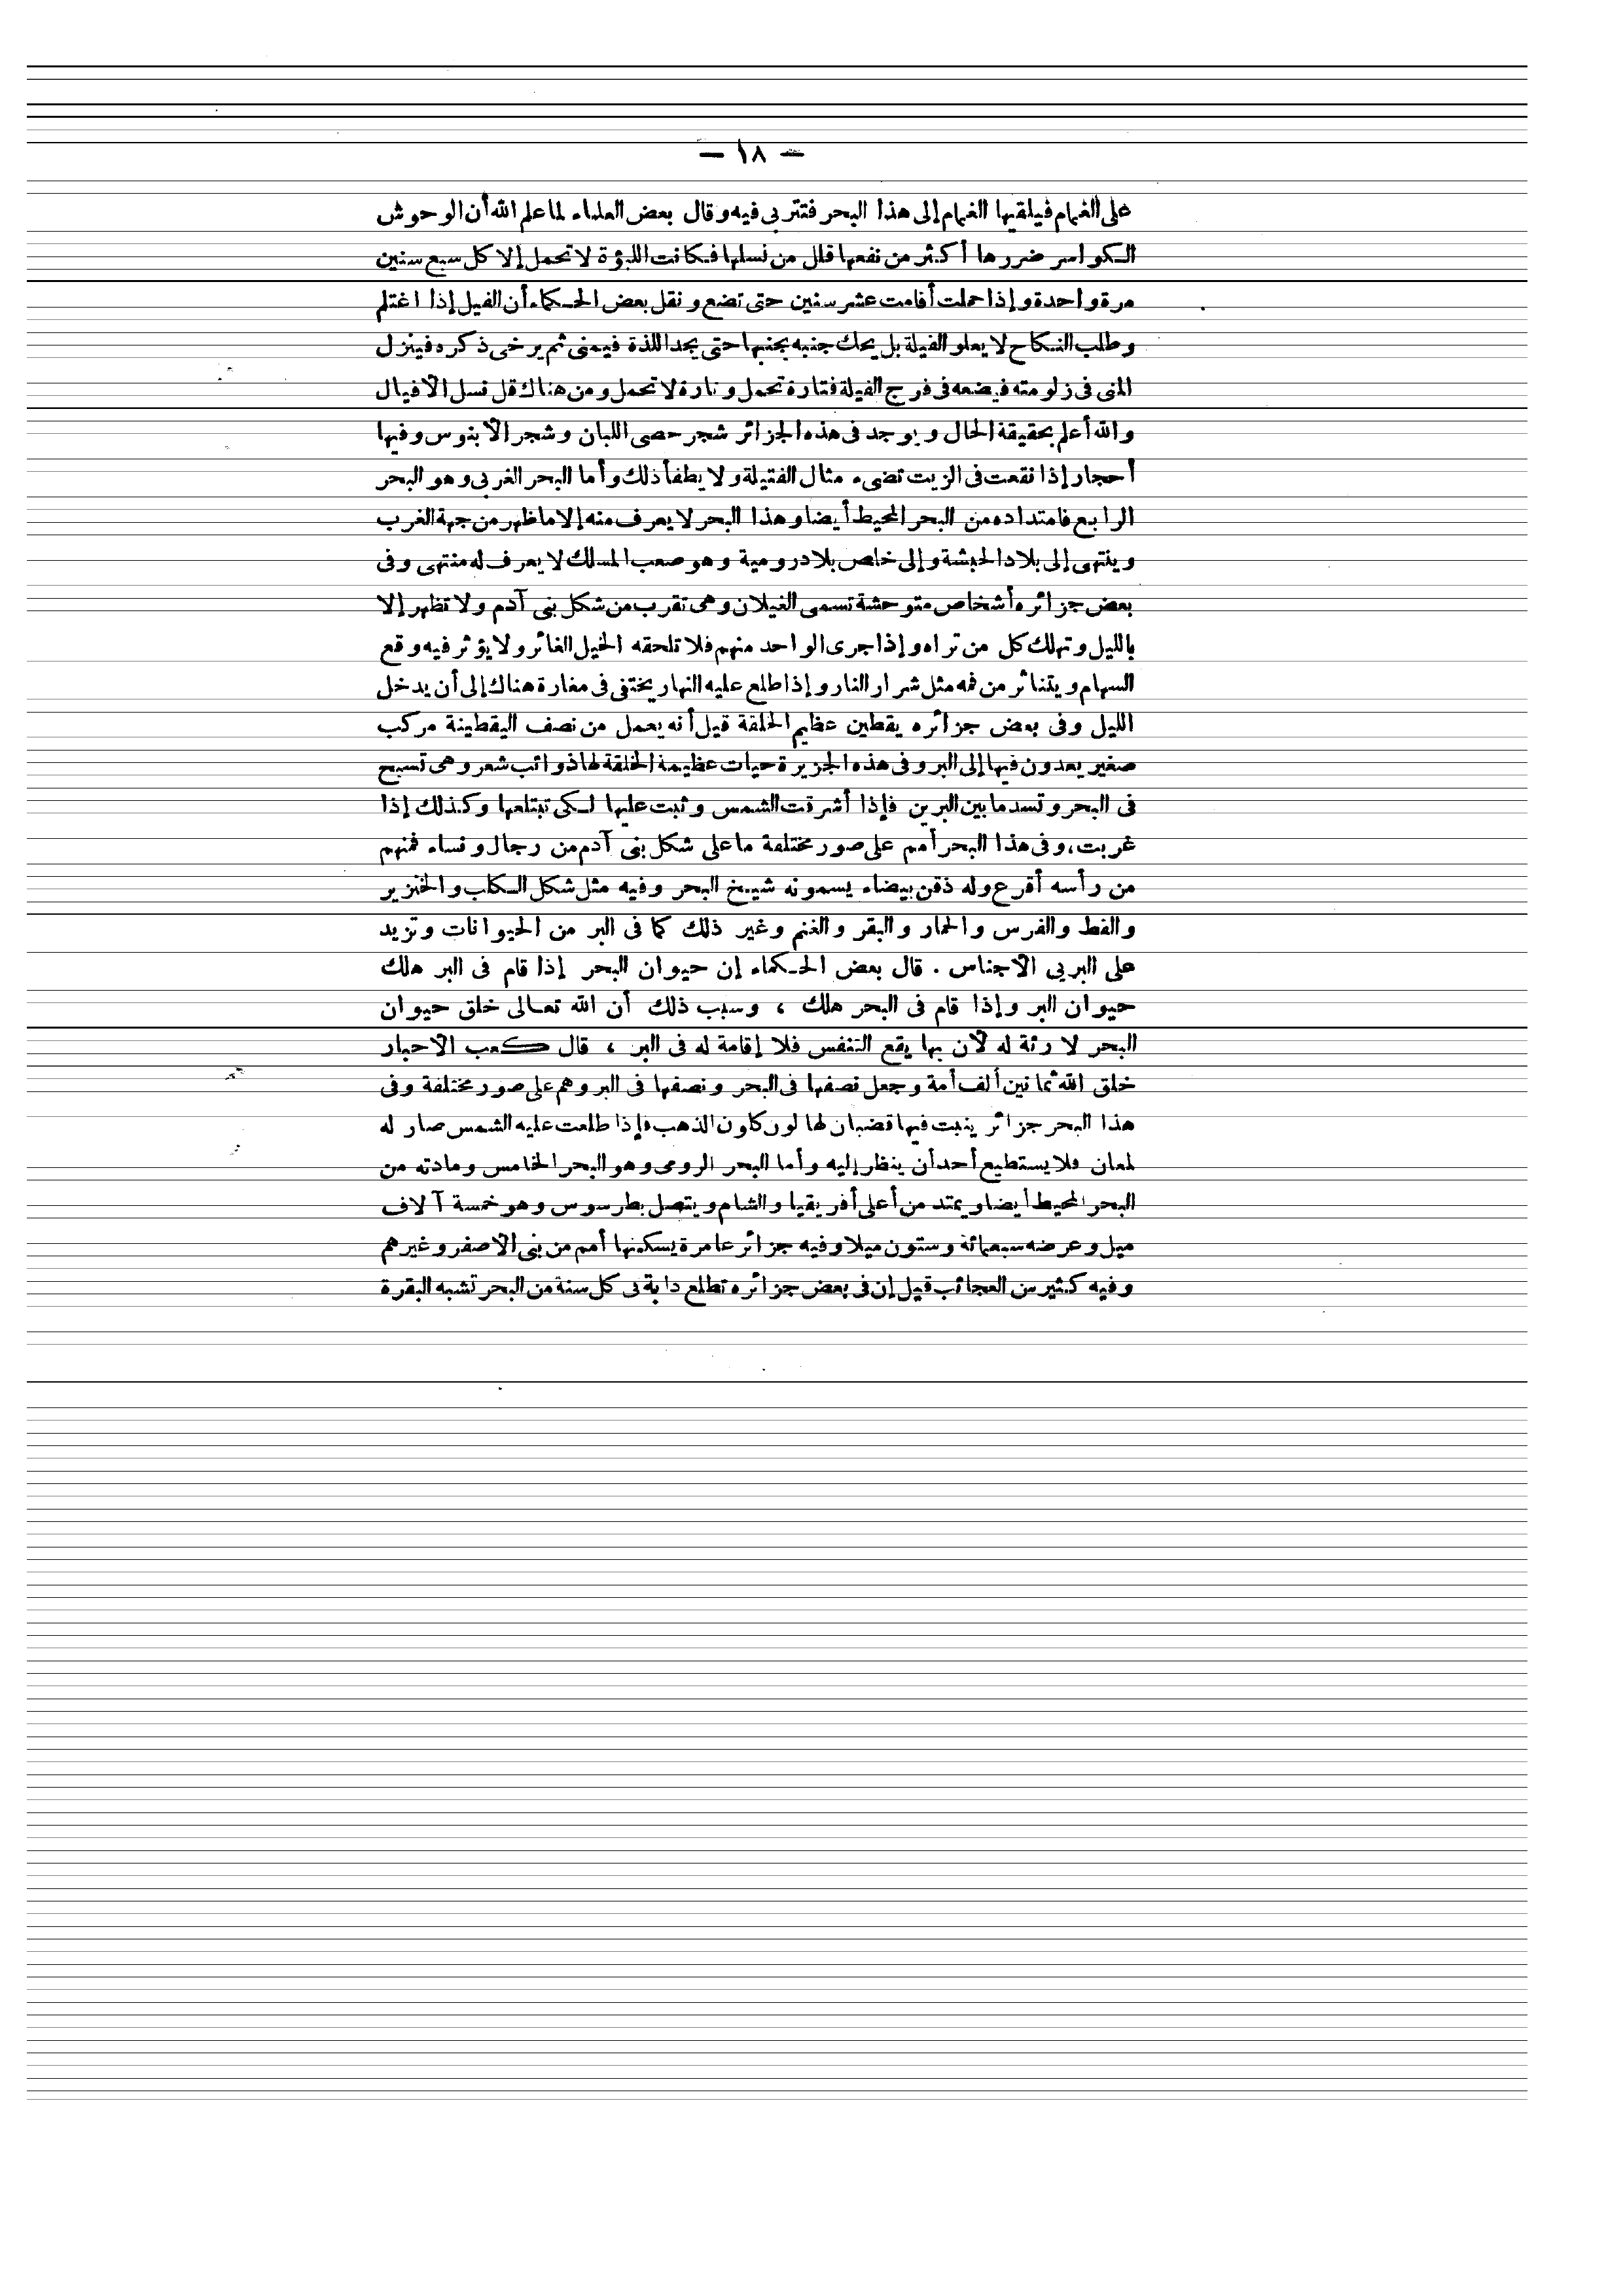 — ١٨ —
على الغمام فيلقيها الغمام إلى هذا البحر فتتربى فيه وقال بعض العلماء لما علم الله أن الوحوش
الكواسر ضررها أكثر من نفعها قلل من نسلها فكانت اللبؤة لا تحمل إلا كل سبع سنين
مرة واحدة وإذا حملت أقامت عشر سنين حتى تضع ونقل بعض الحكماء أن الفيل إذا اغتلم
وطلب النكاح لا يعلو الفيلة بل يحك جنبه بجنبها حتى يجد اللذة فيمنى ثم يرخى ذكره فينزل
المنى فى زلومته فيضعه فى فرج الفيلة فتارة تحمل وتارة لا تحمل ومن هناك قل نسل الأفيال
والله أعلم بحقيقة الحال ويوجد فى هذه الجزائر شجر حصى اللبان وشجر الأبنوس وفيها
أحجار إذا نقعت فى الزيت تضىء مثال الفتيلة ولا يطفأ ذلك وأما البحر الغربى وهو البحر
الرابع فامتداده من البحر المحيط أيضا وهذا البحر لا يعرف منه إلا ما ظهر من جهة الغرب
وينتهى إلى بلاد الحبشة وإلى خاص بلاد رومية وهو صعب المسلك لا يعرف له منتهى وفى
بعض جزائره أشخاص متوحشة تسمى الغيلان وهى تقرب من شكل بنى آدم ولا تظهر إلا
بالليل وتهلك كل من تراه وإذا جرى الواحد منهم فلا تلحقه الخيل الغائر ولا يؤثر فيه وقع
السهام ويتناثر من فمه مثل شرار النار وإذا طلع عليه النهار يختفى فى مغارة هناك إلى أن يدخل
الليل وفى بعض جزائره يقطين عظيم الخلقة قيل أنه يعمل من نصف اليقطينة مركب
صغير يعدون فيها إلى البر وفى هذه الجزيرة حيات عظيمة الخلقة لها ذوائب شعر وهى تسبح
فى البحر وتسد ما بين البرين فإذا أشرقت الشمس وثبت عليها لكى تبتلعها وكذلك إذا
غربت، وفى هذا البحر أمم على صور مختلفة ما على شكل بنى آدم من رجال ونساء فمنهم
من رأسه أقرع وله ذقن بيضاء يسمونه شيخ البحر وفيه مثل شكل الكلب والخنزير
والقط والفرس والحمار والبقر والغنم وغير ذلك كما فى البر من الحيوانات وتزيد
على البربى الأجناس . قال بعض الحكماء إن حيوان البحر إذا قام فى البر هلك
حيوان البر وإذا قام فى البحر هلك ، وسبب ذلك أن الله تعالى خلق حيوان
البحر لا رئة له لأن بها يقع التنفس فلا إقامة له فى البر ، قال كعب الأحبار
خلق الله ثمانين ألف أمة وجعل نصفها فى البحر ونصفها فى البر وهم على صور مختلفة وفى
هذا البحر جزائر ينبت فيها قضبان لها لون كلون الذهب فإذا طلعت عليه الشمس صار له
لمعان فلا يستطيع أحد أن ينظر إليه وأما البحر الرومى وهو البحر الخامس ومادته من
البحر المحيط أيضا ويمتد من أعلى أفريقيا والشام ويتصل بطرسوس وهو خمسة آلاف
ميل وعرضه سبعمائة وستون ميلا وفيه جزائر عامرة يسكنها أمم من بنى الأصفر وغيرهم
وفيه كثير من العجائب قيل إن فى بعض جزائره تطلع دابة فى كل سنة من البحر تشبه البقرة